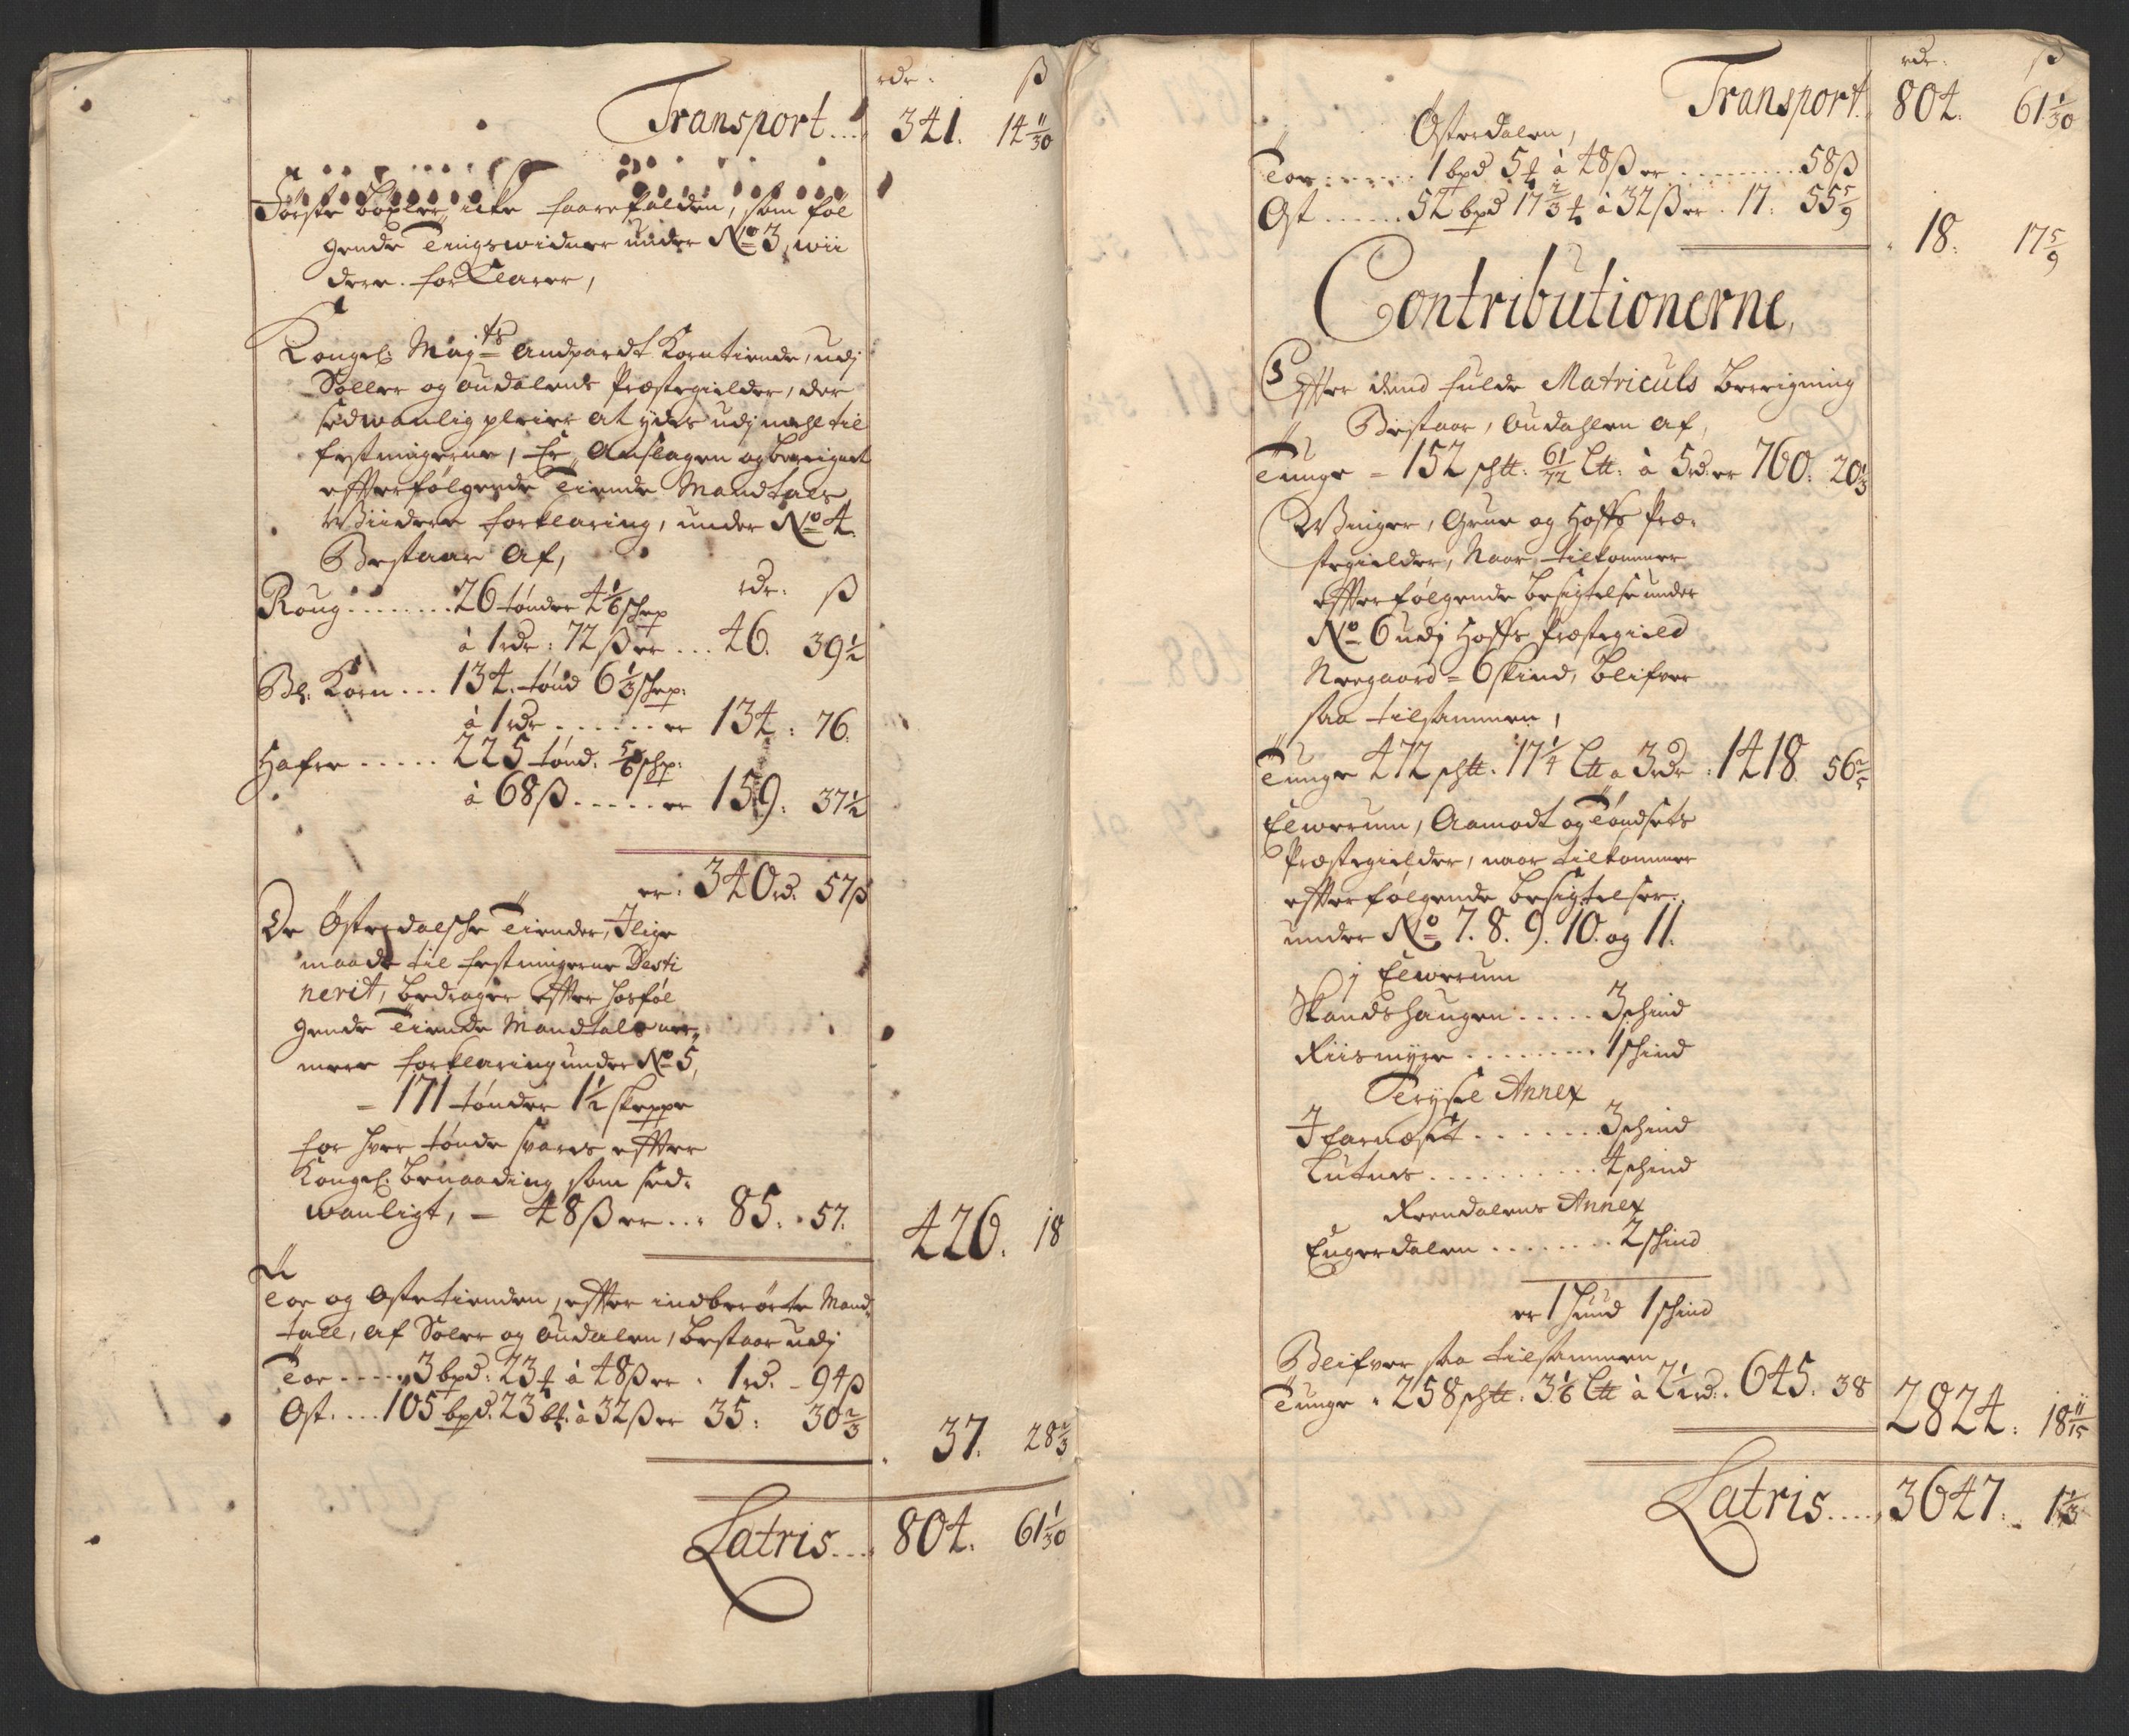 rdr. ß
Transport.... 341. 14 11/30
Første böxler icke faarefalden, som föl
gende Tingswidner under No 3, wii
dere forklarer,
Kongel: Majts Andpardt Korntiende, udj
Soller og Oudalens Præstegielder, der
sedwanlig pleier at ydes udj mehl til
festningerne, Er Anslagen og beregnet
effterfølgende Tiende Mandtals
Wiidere forklaring, under No 4.
Bestaar Af,
rdr. ß
Roug........26 tönder 4 1/6 schep
à 1 rdr: 72 ß er... 46. 39 1/2
Bl: Korn... 134. tönd 6 1/3 schep:
à 1 rdr....... er 134: 76.
Hafre..... 225 tönd. 5/6 schp:
à 68 ß..... er 159: 37 1/2
er: 340 rd. 57 ß
De Österdalsche Tiender, J lige
maade til festningerne Desti
nerit, bedrager effter hosföl
gende Tiende Mandtals ner,
mere forklaring under No 5,
= 171 tönder 1 1/2 skeppe
for hver tönde svares effter
Kongel. benaading som sed-
wanligt, – 48 ß er... 85.. 57. 426. 18
Toe og Ostetienden, effter indberörte Mand,
tall, af Soler og Oudalen, bestaar udj
Toe.....3 bpd: 23 ℔ à 48 ß er. 1 rd. – 94 ß
Ost....105 bpd. 23 b℔. à 32 ß er 35: 30 2/3 37. 28 2/3
Latris.... 804. 61 1/30
rdr. ß
Transport. 804. 61 1/30
Österdalen,
Toe....... 1 bpd 5 ℔ à 48 ß er......... 58 ß
Ost......52 bpd 17 2/3 ℔ à 32 ß er. 17: 55 5/9 18. 17 5/9
Contributionerne,
Effter dend fulde Matriculs Beregning
Bestaar, Oudahlen af,
Tunge = 152 schtt: 61/72 Ltt: à 5 rd er 760. 20 1/3
Winger, Grue og Hoffs Præ-
stegielder, Naar tilkommer
effterfølgende besigtelse under
No 6 udj Hoffs Præstegield
Neegaard = 6 skind, blifver
saa tilsammen,
Tunge 472 schtt. 17 1/4 Ltt a 3 rdr: 1418. 56 2/5
Elwerum, Aamodt og Töndsets
Præstegielder, naar tilkommer
effterfølgende besigtelser.
under No 7. 8. 9. 10. og 11.
j Elwerum
Skandshaugen..... 3 schind
Riismyre......... 1 schind
Trysle Annex
J farnæset....... 3 schind
Lutnes.......... 4 schind
Reendalens Annex
Engerdalen........ 2 schind
er 1 hund 1 schind
Blifver saa tilsammen
Tunge. 258 schtt. 3 1/6 Ltt à 2 1/2 rd. 645. 38 2824. 18 11/15
Latris.... 3647. 1 1/3